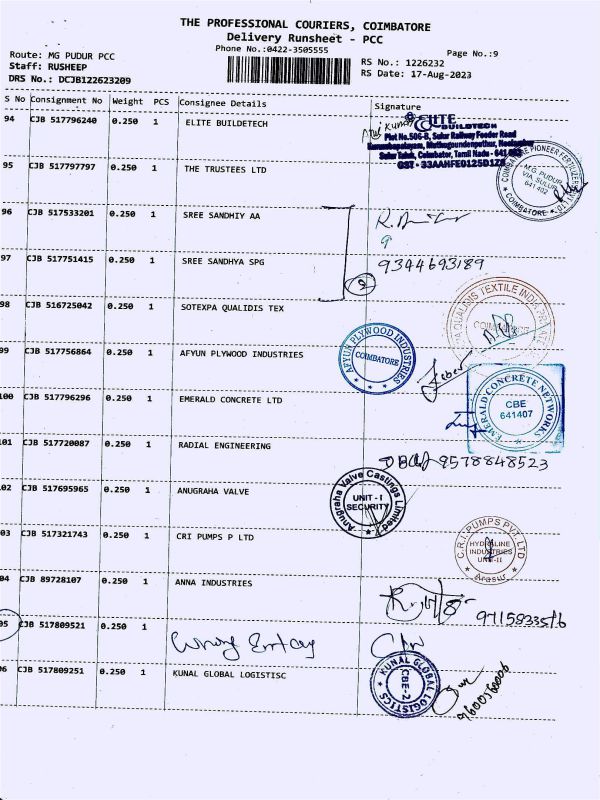 THE PROFESSIONAL COURIERS, COIMBATORE
Delivery Runsheet - PCC
Phone No.:0422-3505555
Page No.:9
Route: MG PUDUR PCC
Staff: RUSHEEP
DRS No.: DCJB122623209
RS No.: 1226232
RS Date: 17-Aug-2023
S No Consignment No Weight PCS Consignee Details Signature
94 CJB 517796240 0.250 1 ELITE BUILDETECH
ELITE
BUILDTECH
Plot No.506-B, Sulur Railway Feeder Road
Sulur Taluk, Coimbator, Tamil Nadu - 641
GST - 33AAHFE0125D1Z8
95 CJB 517797797 0.250 1 THE TRUSTEES LTD
COIMBATORE PIONEER FERTILIZERS
M.G. PUDUR
VIA. SULUR
641 402
COIMBATORE
96 CJB 517533201 0.250 1 SREE SANDHIY AA
97 CJB 517751415 0.250 1 SREE SANDHYA SPG
9344693189
2
98 CJB 516725042 0.250 1 SOTEXPA QUALIDIS TEX
QUALIDIS TEXTILE INDIA
99 CJB 517756864 0.250 1 AFYUN PLYWOOD INDUSTRIES
AFYUN PLYWOOD INDUSTRIES
COIMBATORE
100 CJB 517796296 0.250 1 EMERALD CONCRETE LTD
EMERALD CONCRETE NETWORKS
CBE
641407
101 CJB 517720087 0.250 1 RADIAL ENGINEERING
9578848523
02 CJB 517695965 0.250 1 ANUGRAHA VALVE
Anugraha Valve Castings Limited
UNIT - I
SECURITY
03 CJB 517321743 0.250 1 CRI PUMPS P LTD
C.R.I. PUMPS PVT. LTD
HYDROLINE
INDUSTRIES
UNIT-II
Arasur
04 CJB 89728107 0.250 1 ANNA INDUSTRIES
05 CJB 517809521 0.250 1 Wrong Entry
06 CJB 517809251 0.250 1 KUNAL GLOBAL LOGISTISC
KUNAL GLOBAL LOGISTICS
CBE-2
9600560006